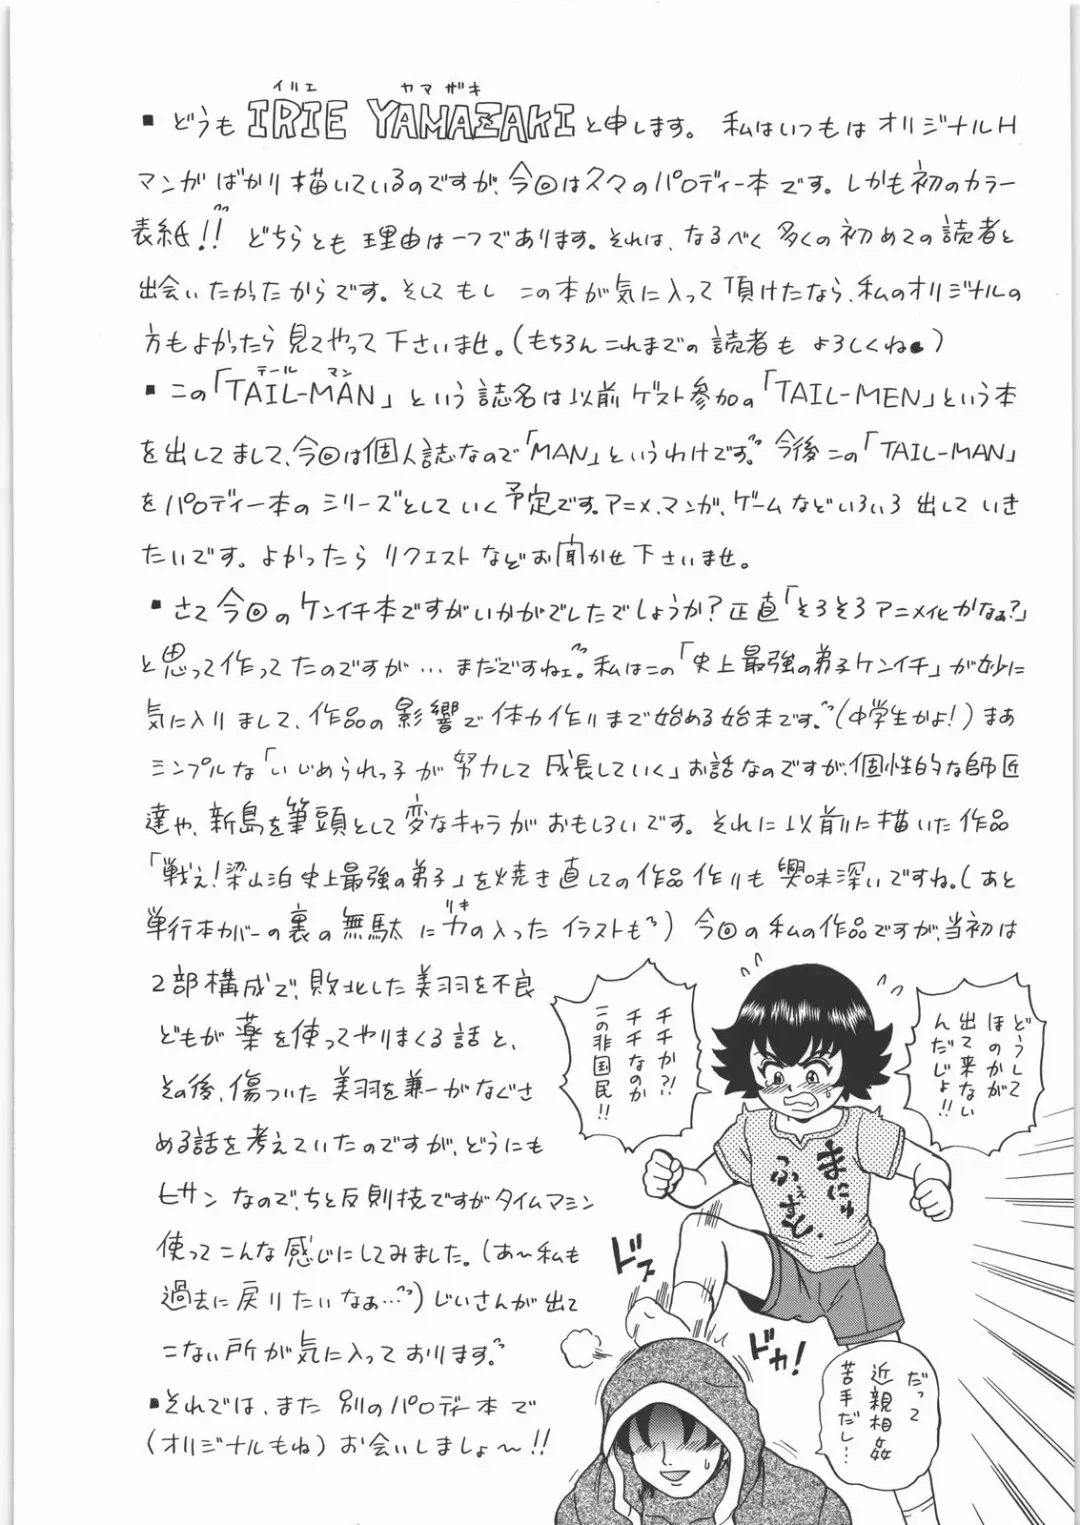 イリエ ヤマザキ
▪どうも IRIE YAMAZAKIと申します。 私はいつもは オリジナルH
マンガばかり描いているのですが、今回は久々のパロディー本です。しかも初のカラー
表紙!! どちらとも理由は一つであります。それは、なるべく多くの初めての読者と
出会いたかったからです。そしてもし この本が気に入って頂けたなら、私のオリジナルの
方もよかったら見てやって下さいませ。(もちろんこれまでの読者もよろしくね)
テール マン
▪この「TAIL-MAN」という誌名は以前ゲスト参加の「TAIL-MEN」という本
を出してまして、今回は個人誌なので「MAN」というわけです。今後この「TAIL-MAN」
をパロディー本のシリーズとしていく予定です。アニメ、マンガ、ゲームなどいろいろ出していき
たいです。よかったらリクエストなどお聞かせ下さいませ。
▪さて今回のケンイチ本ですがいかがでしたでしょうか?正直「そろそろアニメ化かなぁ?」
と思って作ってたのですが…まだですねェ。私はこの「史上最強の弟子ケンイチ」が妙に
気に入りまして、作品の影響で体力作りまで始める始末です。(中学生かよ!)まあ
シンプルな「いじめられっ子が努力して成長していく」お話なのですが、個性的な師匠
達や、新島を筆頭として変なキャラがおもしろいです。それに以前に描いた作品
「戦え!梁山泊史上最強の弟子」を焼き直しての作品作りも興味深いですね。(あと
単行本カバーの裏の無駄に力の入ったイラストも)今回の私の作品ですが、当初は
リキ
2部構成で、敗北した美羽を不良
どもが薬を使ってやりまくる話と、
その後、傷ついた美羽を兼一がなぐさ
める話を考えていたのですが、どうにも
ヒサンなので、ちと反則技ですがタイムマシン
使ってこんな感じにしてみました。(あ〜私も
過去に戻りたいなぁ…)じいさんが出て
こない所が気に入っております。
▪それでは、また別のパロディー本で
(オリジナルもね)お会いしましょ〜!!
どーして
ほのかが
出て来ない
んだじょ!!
チチか?!
チチなのか
この非国民!!
まにゅ
ふぇすと、
ドズ
ドカ!
だって
近親相姦
苦手だし…